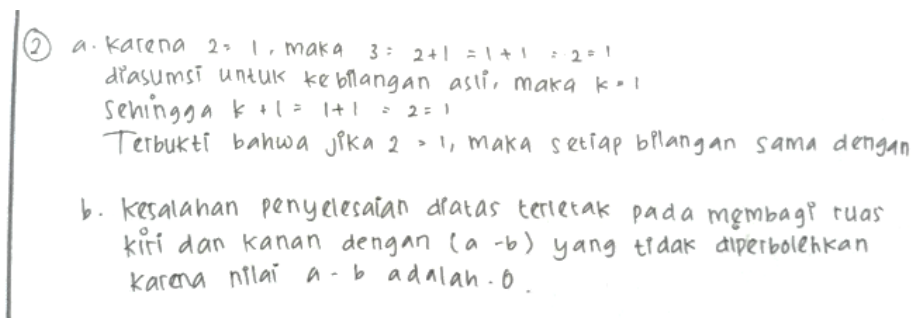 ② a. Karena 2 = 1, maka 3 = 2+1 = 1+1 = 2 = 1
diasumsi untuk k ebilangan asli, maka k = 1
Sehingga k + 1 = 1+1 = 2 = 1
Terbukti bahwa jika 2 = 1, maka setiap bilangan sama dengan
b. Kesalahan penyelesaian diatas terletak pada membagi ruas
kiri dan kanan dengan (a-b) yang tidak diperbolehkan
karena nilai a - b adalah .0.